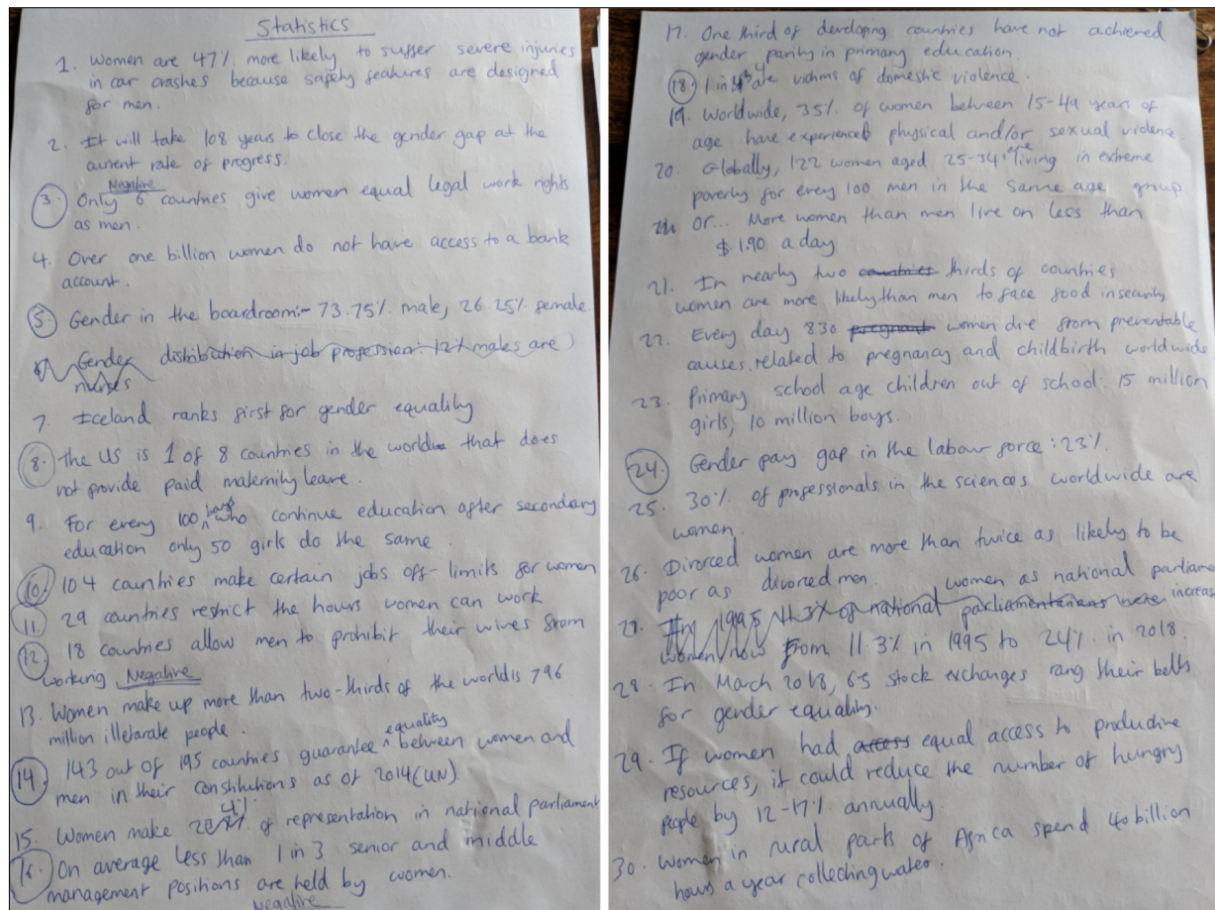 Statistics
1. Women are 47% more likely to suffer severe injuries
in car crashes because safety features are designed
for men.
2. It will take 108 years to close the gender gap at the
current rate of progress.
Negative
3. Only 6 countries give women equal legal work rights
as men.
4. Over one billion women do not have access to a bank
account.
5. Gender in the boardroom:- 73.75% male, 26.25% female
Gender distribution in job profession: 12% males are
nurses
7. Iceland ranks first for gender equality
8. The US is 1 of 8 countries in the world that does
not provide paid maternity leave.
9. For every 100 boys who continue education after secondary
education only 50 girls do the same.
10. 104 countries make certain jobs off-limits for women
11. 29 countries restrict the hours women can work
12. 18 countries allow men to prohibit their wives from
working Negative
13. Women make up more than two-thirds of the world's 796
million illetarate people.
14. 143 out of 195 countries guarantee equality between women and
men in their constitutions as of 2014 (UN)
15. Women make 24% of representation in national parliament
16. On average less than 1 in 3 senior and middle
management positions are held by women.
Negative
17. One third of developing countries have not achieved
gender parity in primary education.
18. 1 in are victims of domestic violence.
19. Worldwide, 35% of women between 15-49 years of
age have experienced physical and/or sexual violence.
20. Globally, 122 women aged 25-34 are living in extreme
poverty for every 100 men in the same age group.
or... More women than men live on less than
$1.90 a day
21. In nearly two countries thirds of countries
women are more likely than men to face food insecurity
22. Every day 830 pregnant women die from preventable
causes related to pregnancy and childbirth worldwide.
23. Primary school age children out of school: 15 million
girls, 10 million boys.
24. Gender pay gap in the labour force: 23%.
25. 30% of professionals in the sciences worldwide are
women.
26. Divorced women are more than twice as likely to be
poor as divorced men.
women as national parliame
27. In 1995 11.3% of national parliamentarians were increas
women, now From 11.3% in 1995 to 24% in 2018.
28. In March 2018, 65 stock exchanges rang their bells
for gender equality.
29. If women had access equal access to productive
resources, it could reduce the number of hungry
people by 12-17% annually.
30. Women in rural parts of Africa spend 40 billion
hours a year collecting water.